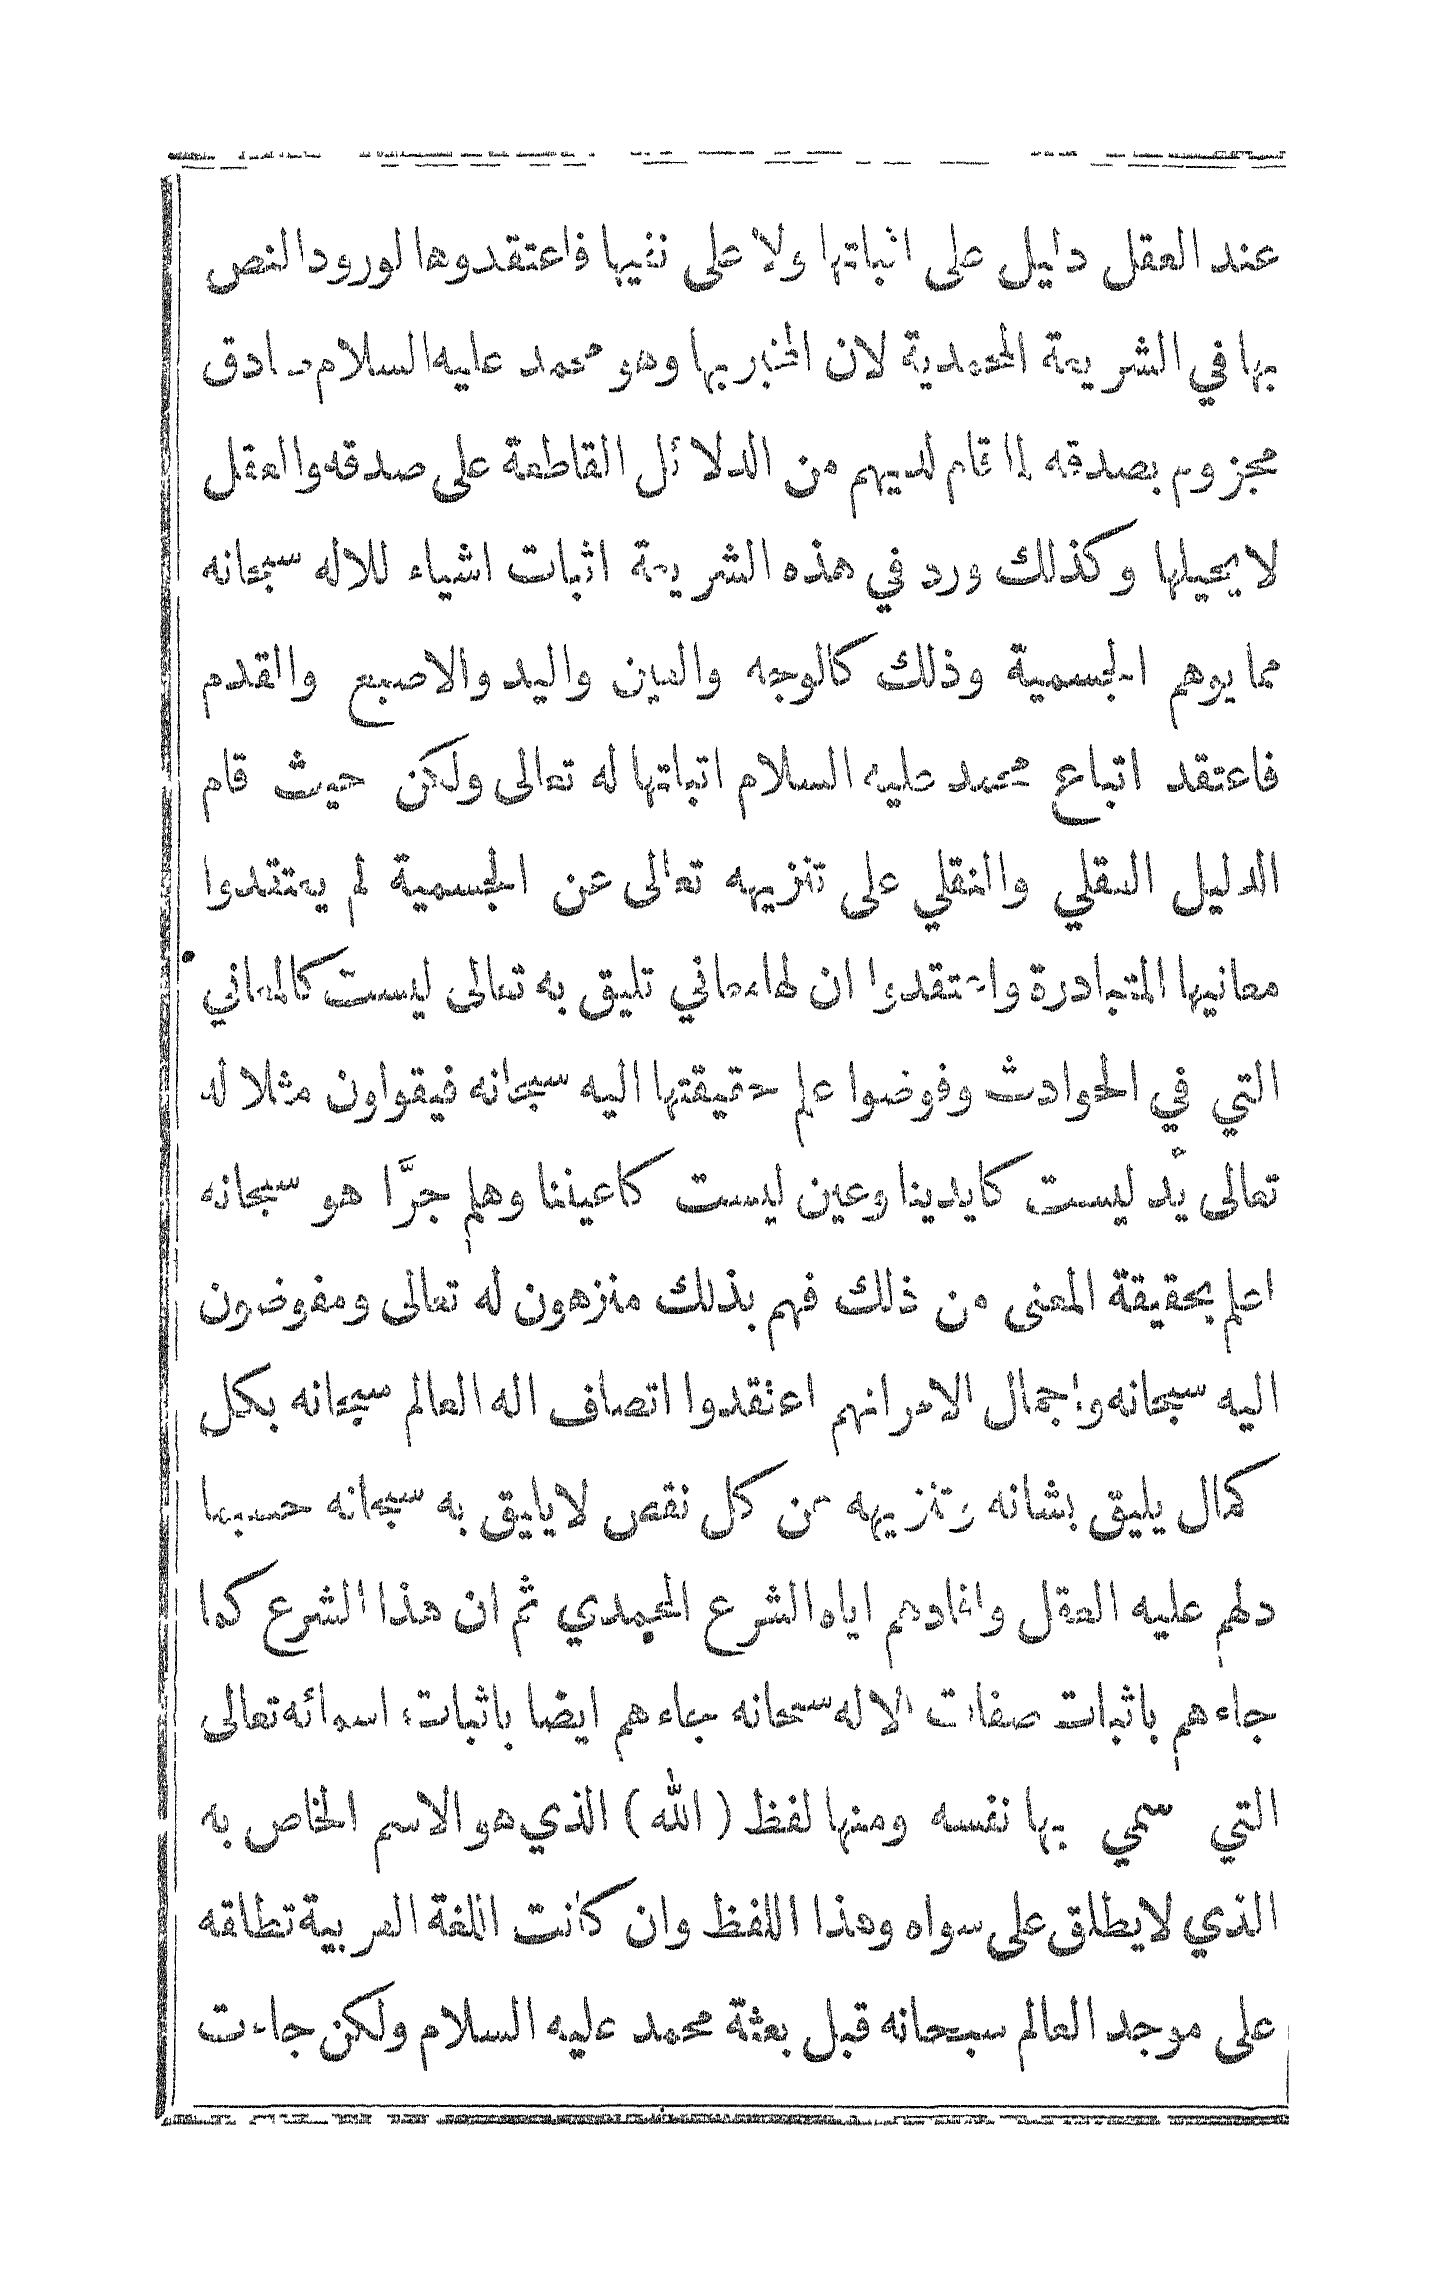 عند العقل دليل على اثباتها ولا على نفيها فاعتقدوها لورود النص
بها في الشريعة المحمدية لان المخبر بها وهو محمد عليه السلام صادق
مجزوم بصدقه لما قام لديهم من الدلائل القاطعة على صدقه والعقل
لا يحيلها وكذلك ورد في هذه الشريعة اثبات اشياء للاله سبحانه
مما يوهم الجسمية وذلك كالوجه والعين واليد والاصبع والقدم
فاعتقد اتباع محمد عليه السلام اثباتها له تعالى ولكن حيث قام
الدليل العقلي والنقلي على تنزيهه تعالى عن الجسمية لم يعتقدوا
معانيها المتبادرة واعتقدوا ان لها معاني تليق به تعالى ليست كالمعاني
التي في الحوادث وفوضوا علم حقيقتها اليه سبحانه فيقولون مثلا له
تعالى يد ليست كايدينا وعين ليست كاعيننا وهلم جرَّا هو سبحانه
اعلم بحقيقة المعنى من ذلك فهم بذلك منزهون له تعالى ومفوضون
اليه سبحانه واجمال الامر انهم اعتقدوا اتصاف اله العالم سبحانه بكل
كمال يليق بشانه وتنزيهه عن كل نقص لا يليق به سبحانه حسبما
دلهم عليه العقل وافادهم اياه الشرع المحمدي ثم ان هذا الشرع كما
جاءهم باثبات صفات الاله سبحانه جاءهم ايضا باثبات اسمائه تعالى
التي سمي بها نفسه ومنها لفظ ( الله ) الذي هو الاسم الخاص به
الذي لا يطلق على سواه وهذا اللفظ وان كانت اللغة العربية تطلقه
على موجد العالم سبحانه قبل بعثة محمد عليه السلام ولكن جاءت